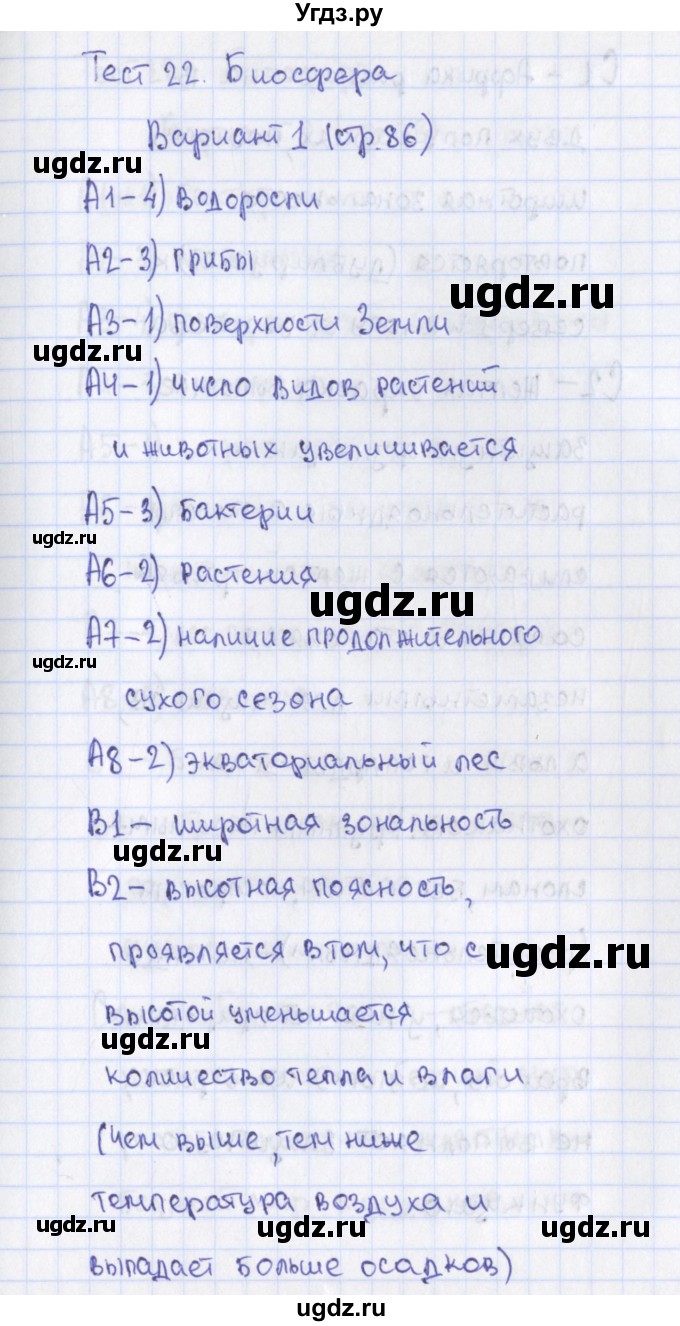 Угдз.ру
Тест 22. Биосфера
Вариант 1 (стр. 86)
ugdz.ru
А1-4) Водоросли
А2-3) Грибы
ugdz.ru
А3-1) поверхности Земли
ugdz.ru
А4-1) число видов растений
и животных увеличивается
А5-3) Бактерии
ugdz.ru
А6-2) Растения
ugdz.ru
А7-2) наличие продолжительного
ugdz.ru
сухого сезона
А8-2) экваториальный лес
В1- широтная зональность
ugdz.ru
В2- высотная поясность,
проявляется в том, что с
ugdz.ru
высотой уменьшается
ugdz.ru
количество тепла и влаги
(чем выше, тем ниже
температура воздуха и
ugdz.ru ugdz.ru ugdz.ru
выпадает больше осадков)
ugdz.ru